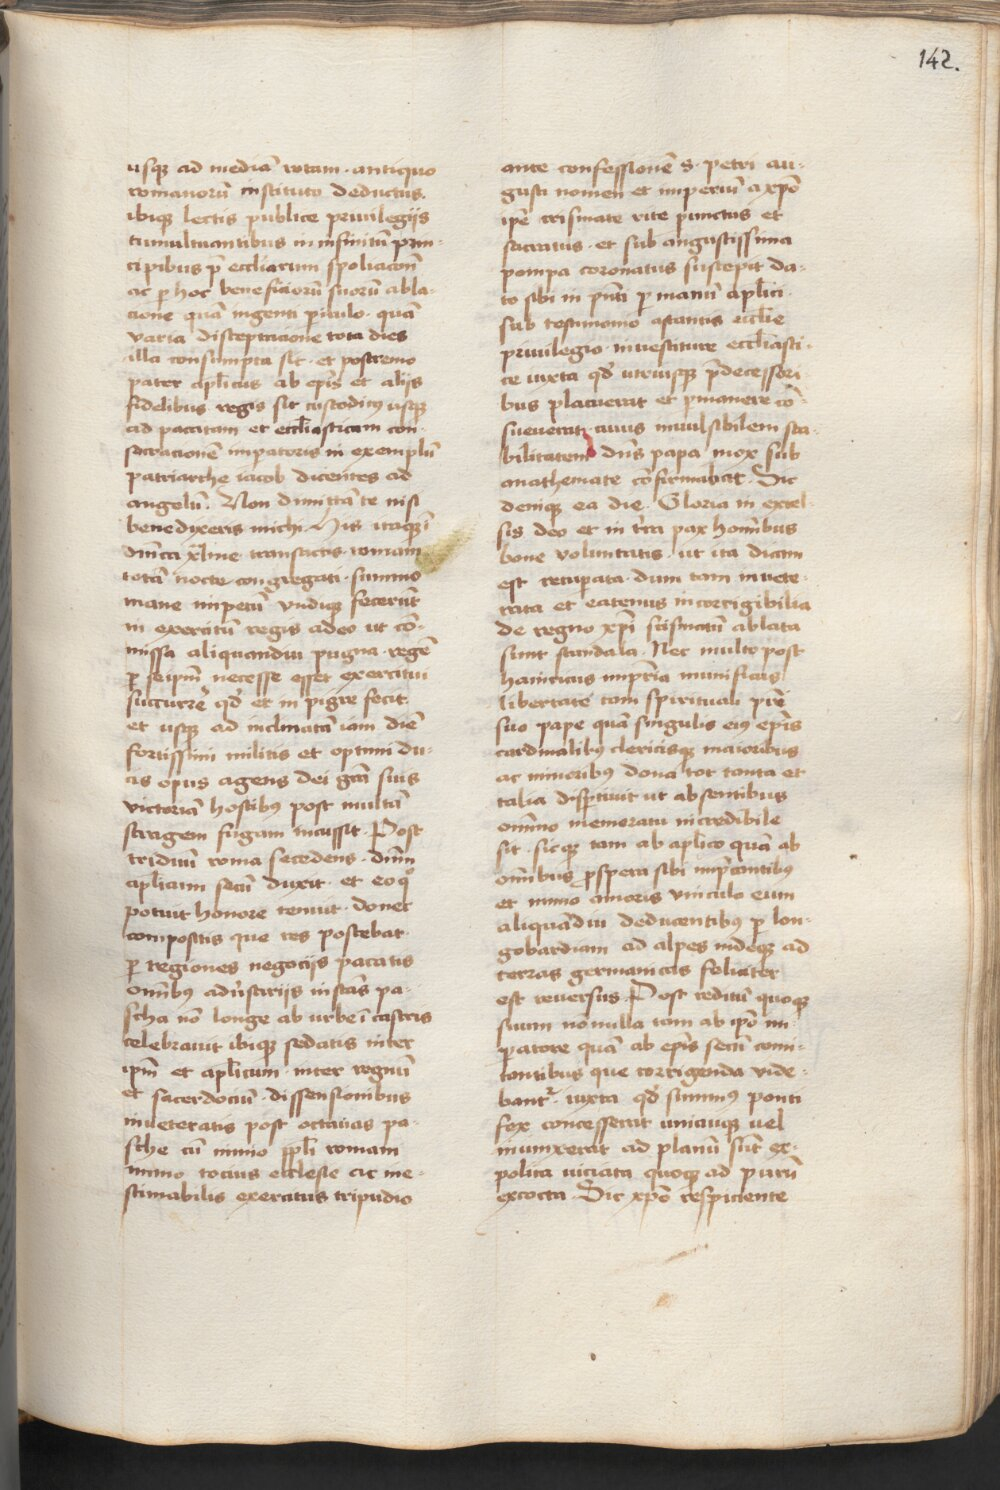 142.
usqꝫ ad mediā rotam · antiquo
romanorū instituto deductus.
ibiqꝫ lectis publice priuilegijs
tumultuantibus in infinitū prin-
cipibus p̄ eccliarum spoliacōn̄
ac p hoc beneficiorū suorū abla-
cione quā ingenti piculo · quā
varia disceptacione tota dies
illa consumpta sit · et postremo
pater aplicus ab ep̄is et alijs
fidelibus regis sit custoditꝰ usqꝫ
ad pacatam et eccliasticam con-
secracionē imperatoris in exemplū
patriarche iacob dicentes ad
angelū · Non dimittā te nisi
benedixeris michi · His itaqꝫ ī
dn̄ica xl̄me transactis romani
totā noctē congregati · summo
mane impetū undiqꝫ fecerūt
in exercitū regis adeo ut cō-
missa aliquandiu pugna · regē
p seipm̄ necesse esset exercitui
succurrē qd̄ et in pigre fecit
et usqꝫ ad inclinatā iam diē
fortissimi militis et optimi du-
cis opus agens dei grā suis
victoriā hostibꝰ post multā
stragem fugam incussit · Post
triduū roma secedens · dn̄m
aplicum secū duxit · et eo qͦ
potuit honore tenuit · donec
compositis que res poscebat
p regiones negocijs pacatis
om̄ibꝰ adūsarijs instās pa-
scha nō longe ab urbe ī castris
celebrauit ibiqꝫ sedatis inter
ipm̄ et aplicum · inter regnū
et sacerdociū · dissensionibus
inueteratis post octauas pa-
sche cū nimio ppli romani
immo tocius ecclesie ac ine-
stimabilis exercitus tripudio
ante confessionē s · petri au-
gusti nomen et imperiū a xp̄o
ipē crismate rite punctus et
sacratus · et sub augustissima
pompa coronatus suscepit da-
to sibi in pn̄ti p manū aplici
sub testimonio astantis ecclie
priuilegio inuestiture eccliasti-
ce iuxta qd̄ utriusqꝫ p̄decessori-
bus placuerat et pmanere cō-
sueuerat · cuius inuulsibilem sta-
bilitatem dn̄s papa mox sub
anathemate cōfirmabat · Sic
deniqꝫ ea die · Gloria in excel-
sis deo et in tr̄ra pax hominibus
bone voluntatis · ut ita dicam
est recuperata · dum tam inuete-
rata et eatenus incorrigibilia
de regno xp̄i scismatū ablata
sunt scandala · Nec multo post
hainricus impr̄ia munificus
libertate tam spirituali pr̄i
suo pape quā singulis eiꝰ ep̄is
cardinalibꝰ clericisqꝫ maioribus
ac minoribꝰ dona tot tanta et
talia disptiuit ut absentibus
om̄ino memoratu incredibile
sit · sicqꝫ tam ab aplico quā ab
om̄ibus prospera sibi imp̄cantibꝰ
et nimio amoris vinculo eum
aliquādiu deducentibꝰ p lon-
gobardiam ad alpes indeqꝫ ad
terras germanicas feliciter
est reuersus · Post reditū quoqꝫ
suum nōnulla tam ab ipō im-
patore quā ab ep̄is secū comi-
tantibus que corrigenda vide-
bantᷣ · iuxta qd̄ summꝰ ponti
fex concesserat unicuiqꝫ uel
iniunxerat ad planū sūt ex-
polita uiciata quoqꝫ ad purū
excocta · Sic xp̄o respiciente